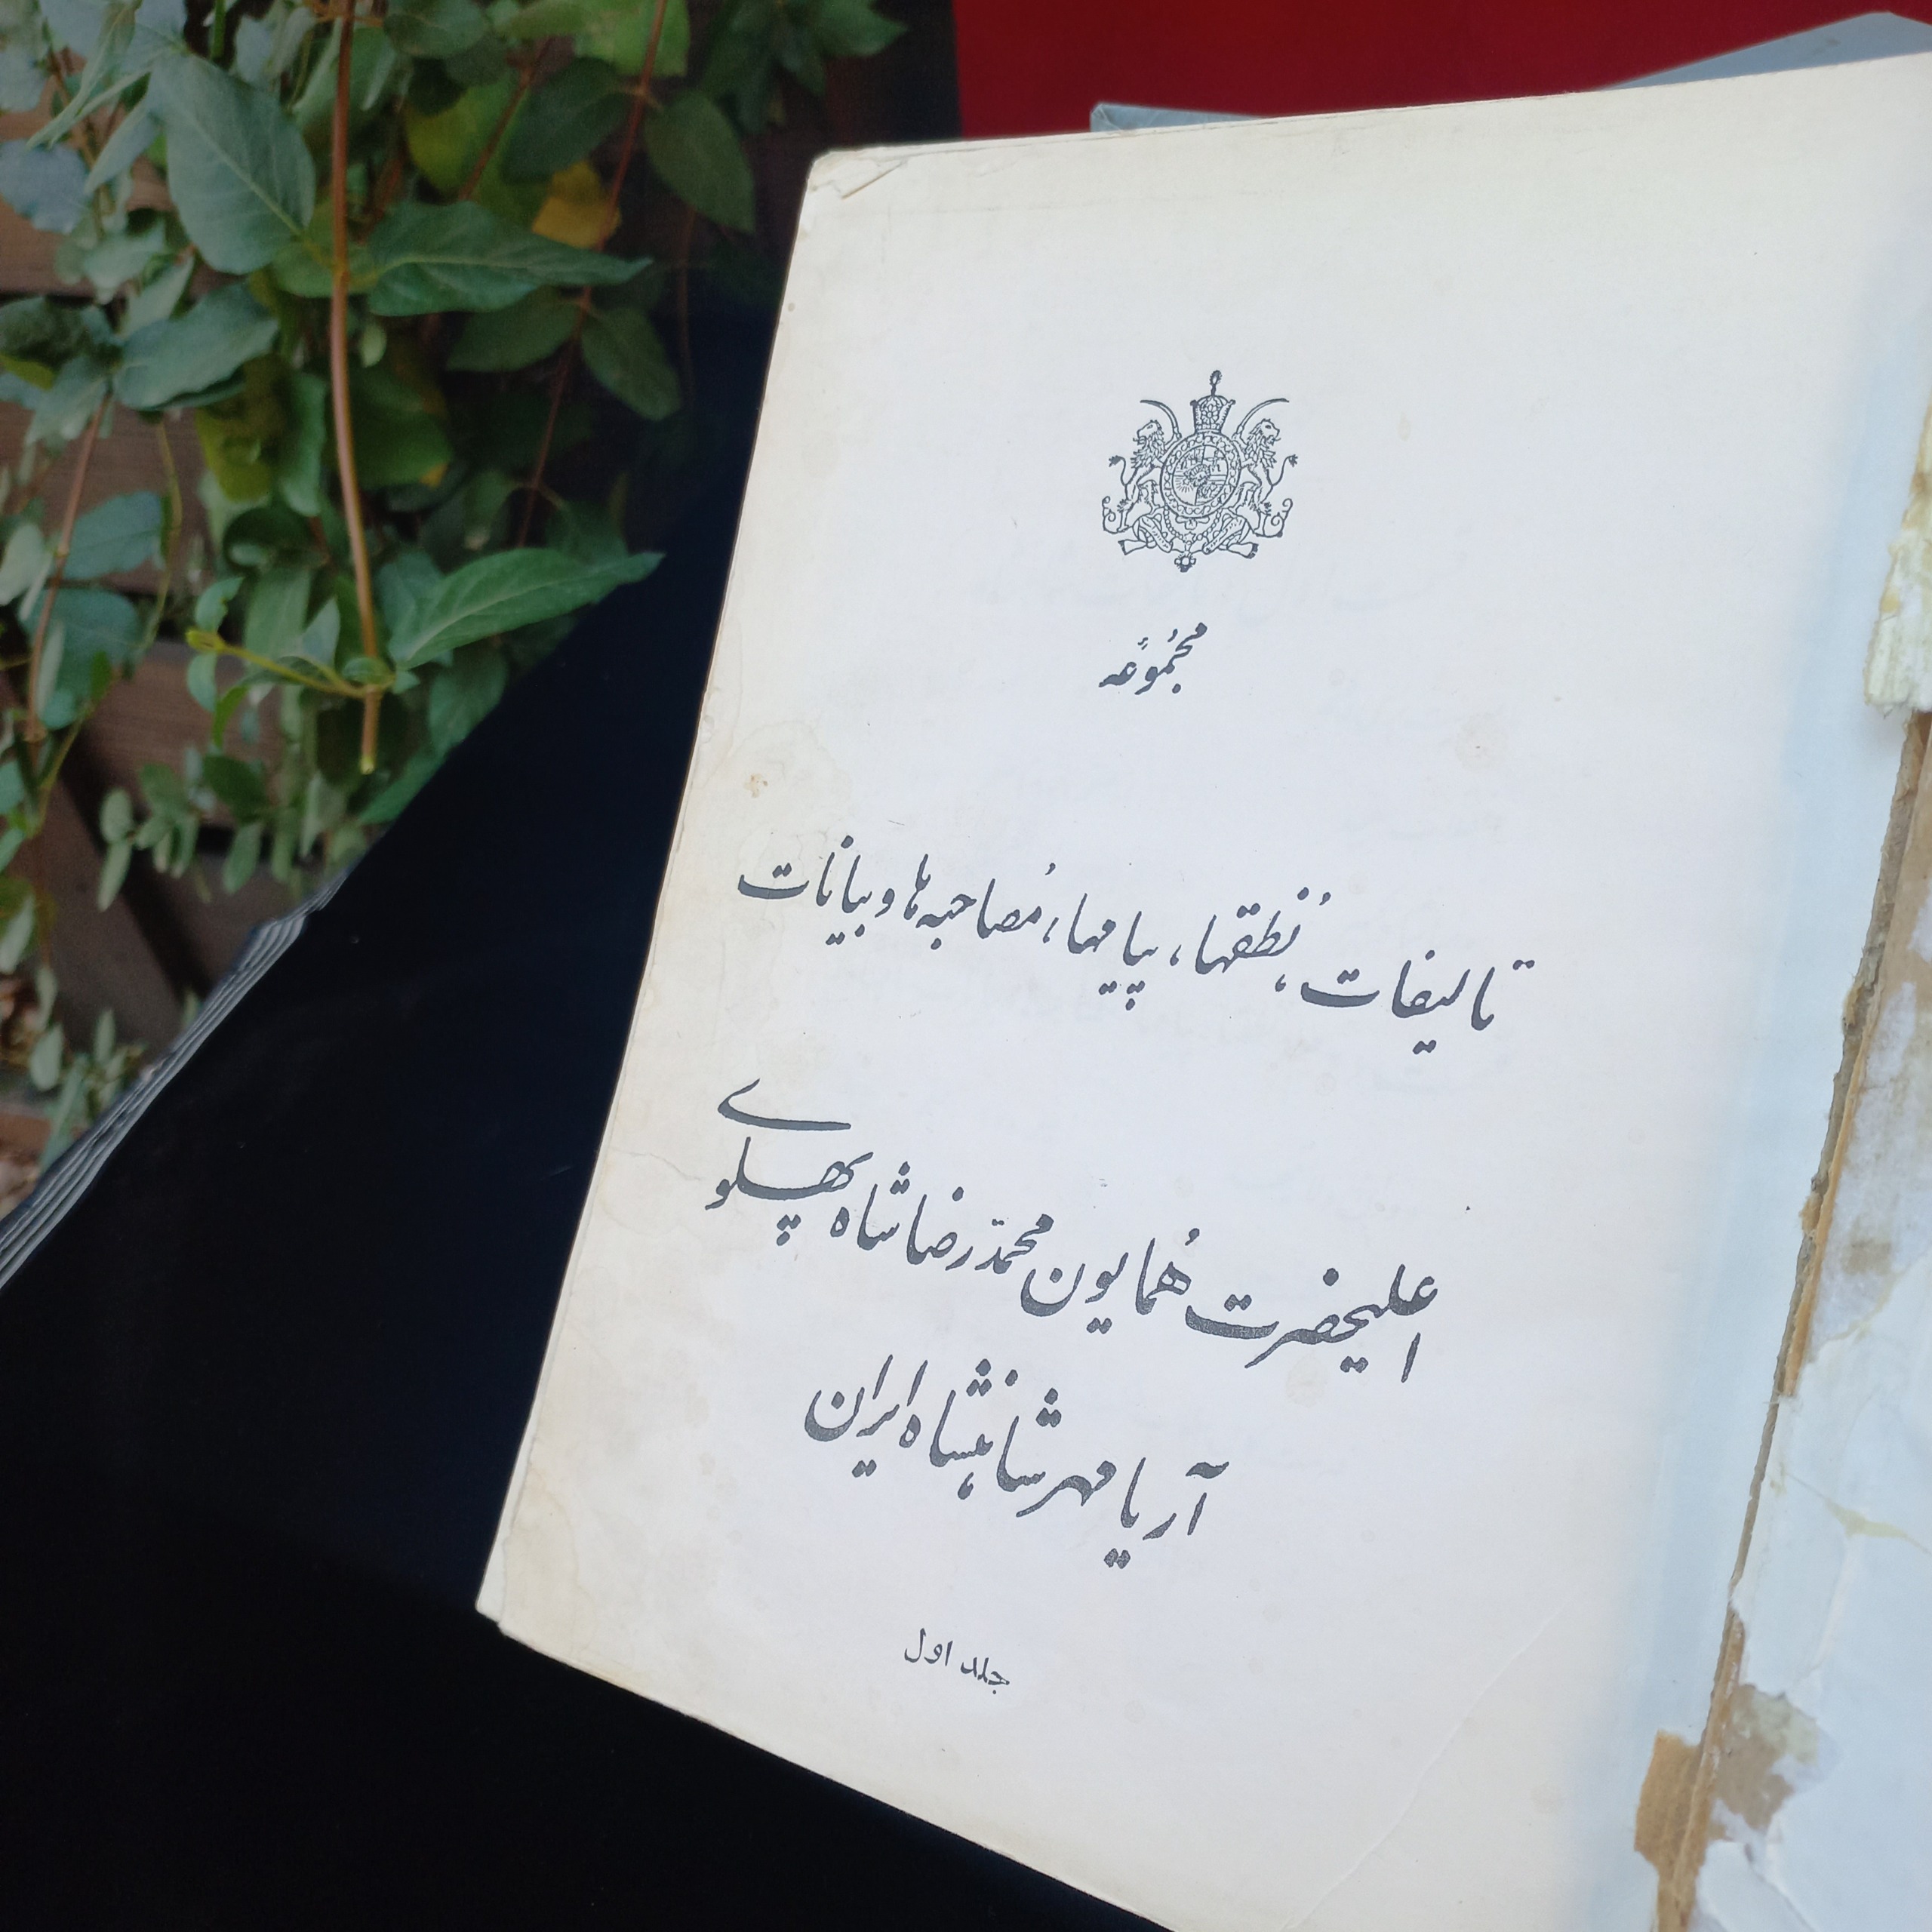 مجُموُعه
تالیفات، نُطقها، پیامها، مُصاحبه‌ها و بیانات
اعلیحضرت هُمایون محمّدرضا شاه پهلوے
آریامهر شاهنشاه ایران
جلد اول